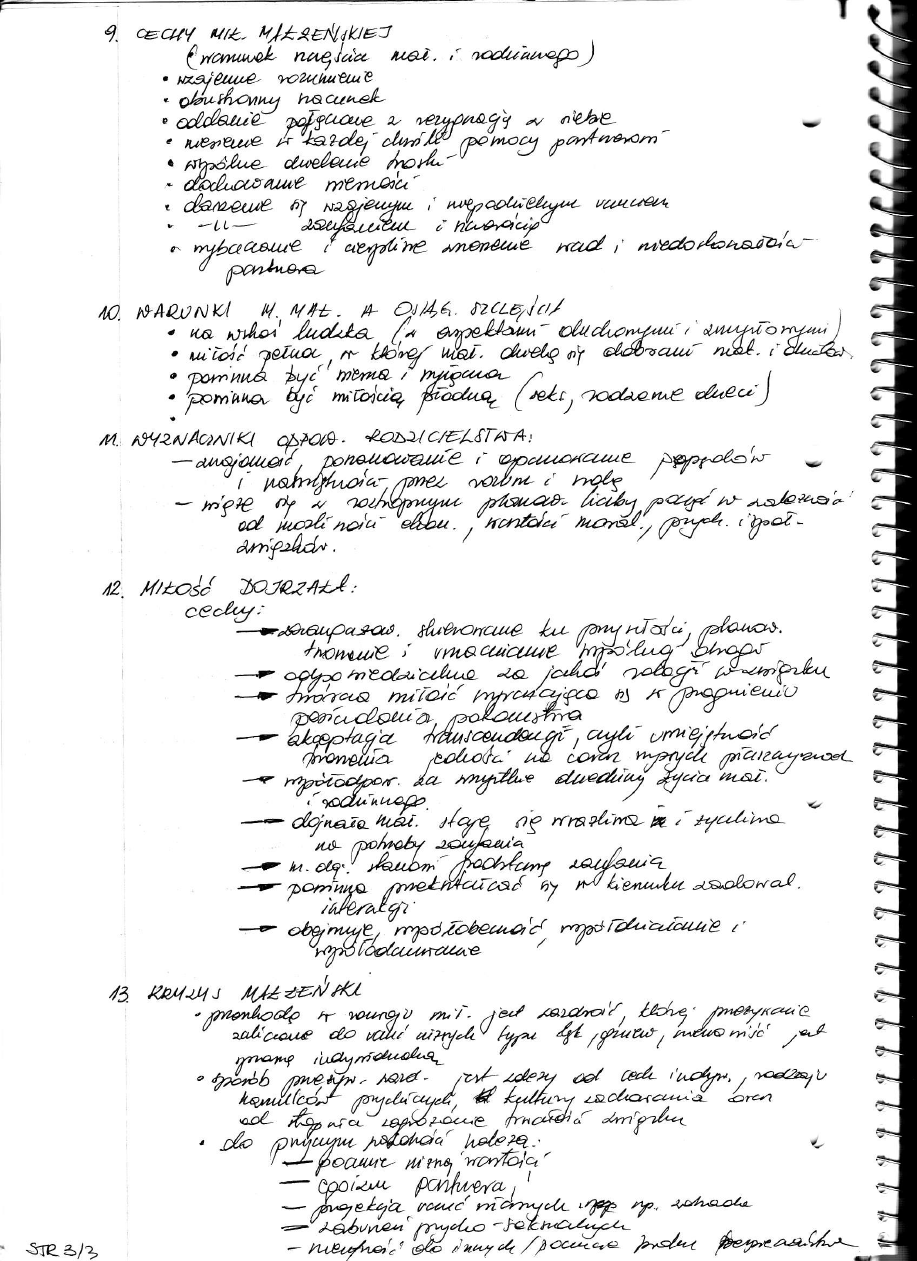 9. CECHY MIŁ. MAŁŻEŃSKIEJ
(warunek szczęścia mał. i rodzinnego)
• wzajemne rozumienie
• obustronny szacunek
• oddanie połączone z rezygnacją z siebie
• niesienie w każdej chwili pomocy partnerom
• wspólne dzielenie trosk
• dochowanie wierności
• darzenie się wzajemnym i niepodzielnym uczuciem
• -||- zaufaniem i szczerością
• wybaczanie i cierpliwe znoszenie wad i niedoskonałości
partnera
10. WARUNKI M. MAŁ. A OSIĄG. SZCZĘŚCIA
• na wskroś ludzka (z aspektami duchowymi i zmysłowymi)
• miłość pełna, w której mał. dzielą się dobrami mat. i duchow.
• powinna być wierna i wyłączna
• powinna być miłością płodną (seks, rodzenie dzieci)
•
11. WYZNACZNIKI ODPOW. RODZICIELSTWA:
— znajomość, poszanowanie i opanowanie popędów
i namiętności przez rozum i wolę
— wiąże się z roztropnym planow. liczby poczęć w zależności
od możliwości ekon., wartości moral., psych. i społ.
związków.
12. MIŁOŚĆ DOJRZAŁA:
cechy:
→ zaangażow. skierowane ku przyszłości, planow.
tworzenie i umacnianie wspólnej drogi
→ odpowiedzialna za jakość relacji w związku
→ twórcza miłość wyrażająca się w pragnieniu
posiadania potomstwa
→ akceptacja transcendencji, czyli umiejętność
tworzenia jedności na coraz wyższych płaszczyznach
→ współodpow. za wszystkie dziedziny życia mał.
i rodzinnego
→ dojrzała mał. stają się wrażliwa i życzliwa
na potrzeby zaufania
→ m. doj. stanowi podstawę zaufania
→ powinna przekształcać się w kierunku zadowal.
interakcji
→ obejmuje, współobecność, współdziałanie i
współodczuwanie
13. KRYZYS MAŁŻEŃSKI
• przeszkodą w rozwoju mił. jest zazdrość, której przeżywanie
zaliczane do uczuć niższych typu lęk, gniew, nienawiść jest
sprawą indywidualną
• sposób przeżyw. zazd. jest zależy od cech indyw., rodzaju
hamulców psychicznych, kultury zachowania oraz
od stopnia zagrożenia trwałości związku
• do przyczyn zazdrości należą:
— poczucie niższej wartości
— egoizm partnera,
— projekcja uczuć własnych np. zdrada
— zaburzeń psycho-seksualnych
— nieufność do innych / poczucia bezpieczeństwa
STR 3/3